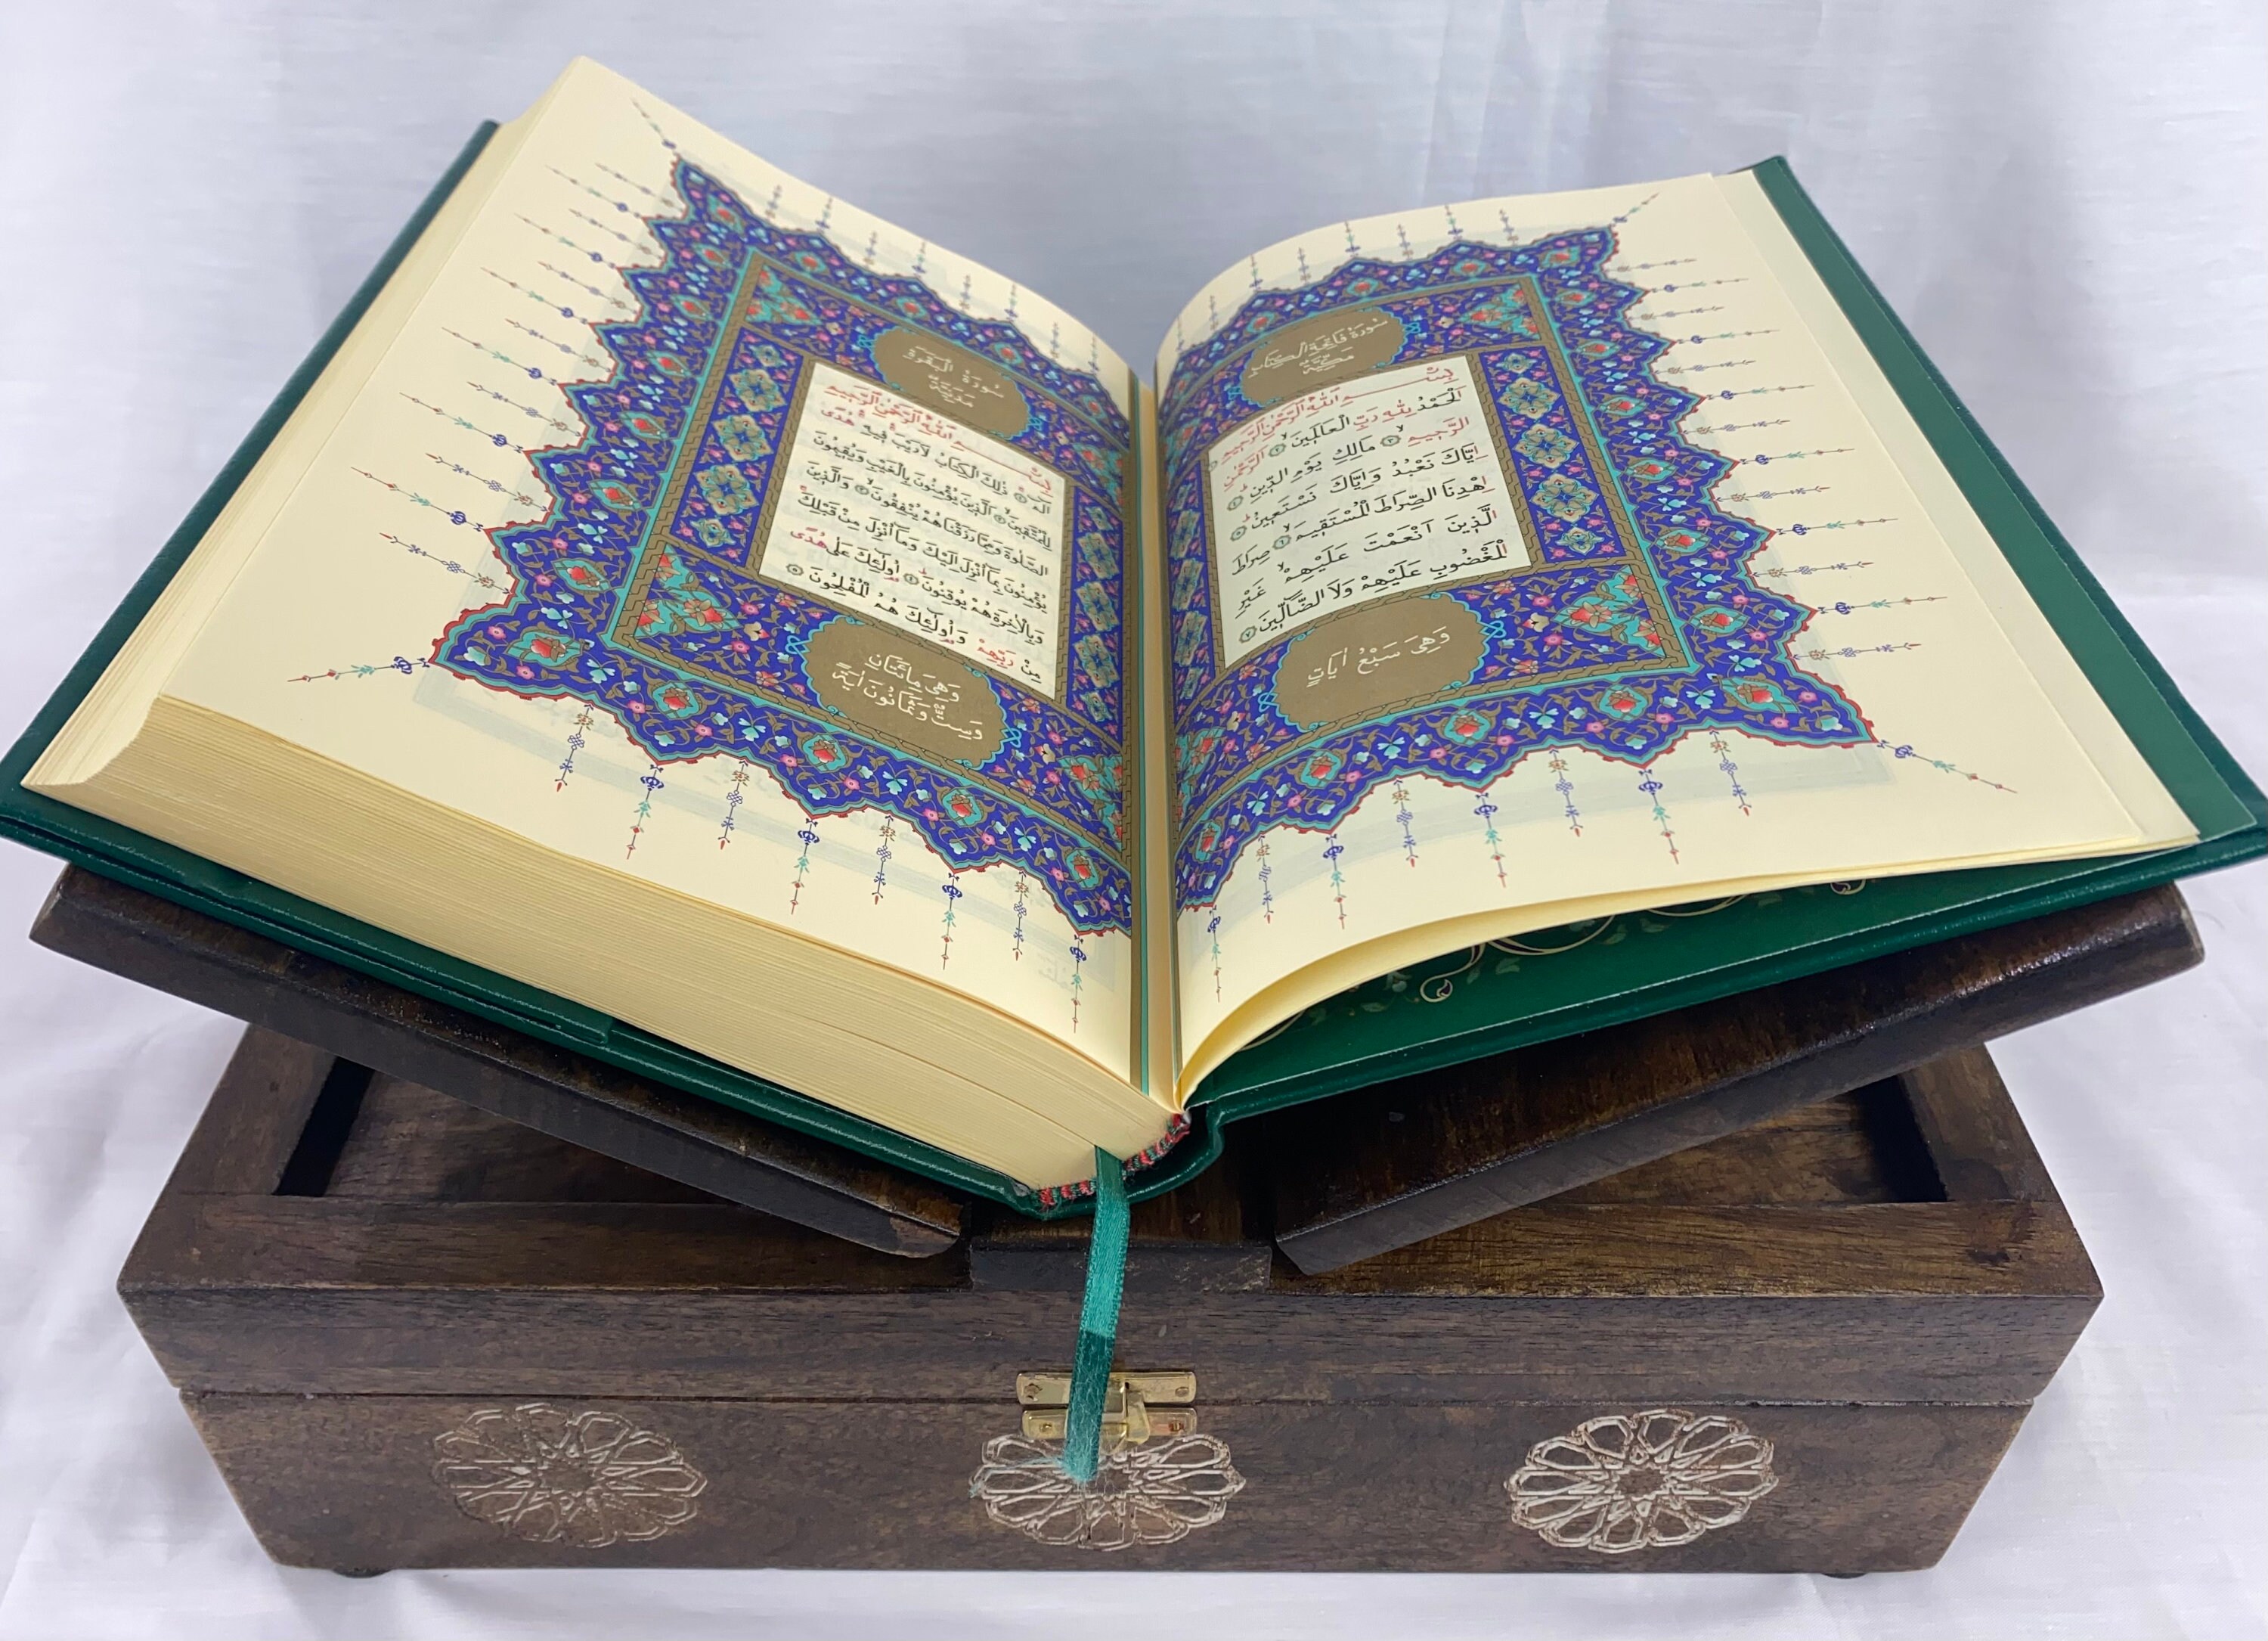 سُورَةُ فَاتِحَةِ الْكِتَابِ
مَكِّيَّةٌ
بِسْمِ اللّٰهِ الرَّحْمٰنِ الرَّحِيمِ ﴿١﴾
اَلْحَمْدُ لِلّٰهِ رَبِّ الْعَالَمِينَۙ ﴿٢﴾ اَلرَّحْمٰنِ
الرَّحِيمِۙ ﴿٣﴾ مَالِكِ يَوْمِ الدِّينِۜ ﴿٤﴾
اِيَّاكَ نَعْبُدُ وَاِيَّاكَ نَسْتَعِينُۜ ﴿٥﴾
اِهْدِنَا الصِّرَاطَ الْمُسْتَقِيمَۙ ﴿٦﴾ صِرَاطَ
الَّذِينَ اَنْعَمْتَ عَلَيْهِمْۙ غَيْرِ
الْمَغْضُوبِ عَلَيْهِمْ وَلَا الضَّٓالِّينَ ﴿٧﴾
وَهِيَ سَبْعُ اٰيَاتٍ
سُورَةُ الْبَقَرَةِ
مَدَنِيَّةٌ
بِسْمِ اللّٰهِ الرَّحْمٰنِ الرَّحِيمِ
الٓمٓ ﴿١﴾ ذٰلِكَ الْكِتَابُ لَا رَيْبَۚ فِيهِۚ هُدًى
لِلْمُتَّقِينَۙ ﴿٢﴾ اَلَّذِينَ يُؤْمِنُونَ بِالْغَيْبِ وَيُقِيمُونَ
الصَّلٰوةَ وَمِمَّا رَزَقْنَاهُمْ يُنْفِقُونَۙ ﴿٣﴾ وَالَّذِينَ
يُؤْمِنُونَ بِمَٓا اُنْزِلَ اِلَيْكَ وَمَٓا اُنْزِلَ مِنْ قَبْلِكَۚ
وَبِالْاٰخِرَةِ هُمْ يُوقِنُونَۜ ﴿٤﴾ اُو۬لٰٓئِكَ عَلٰى هُدًى
مِنْ رَبِّهِمْ وَاُو۬لٰٓئِكَ هُمُ الْمُفْلِحُونَ ﴿٥﴾
وَهِيَ مِائَتَانِ
وَسِتٌّ وَثَمَانُونَ اٰيَةً